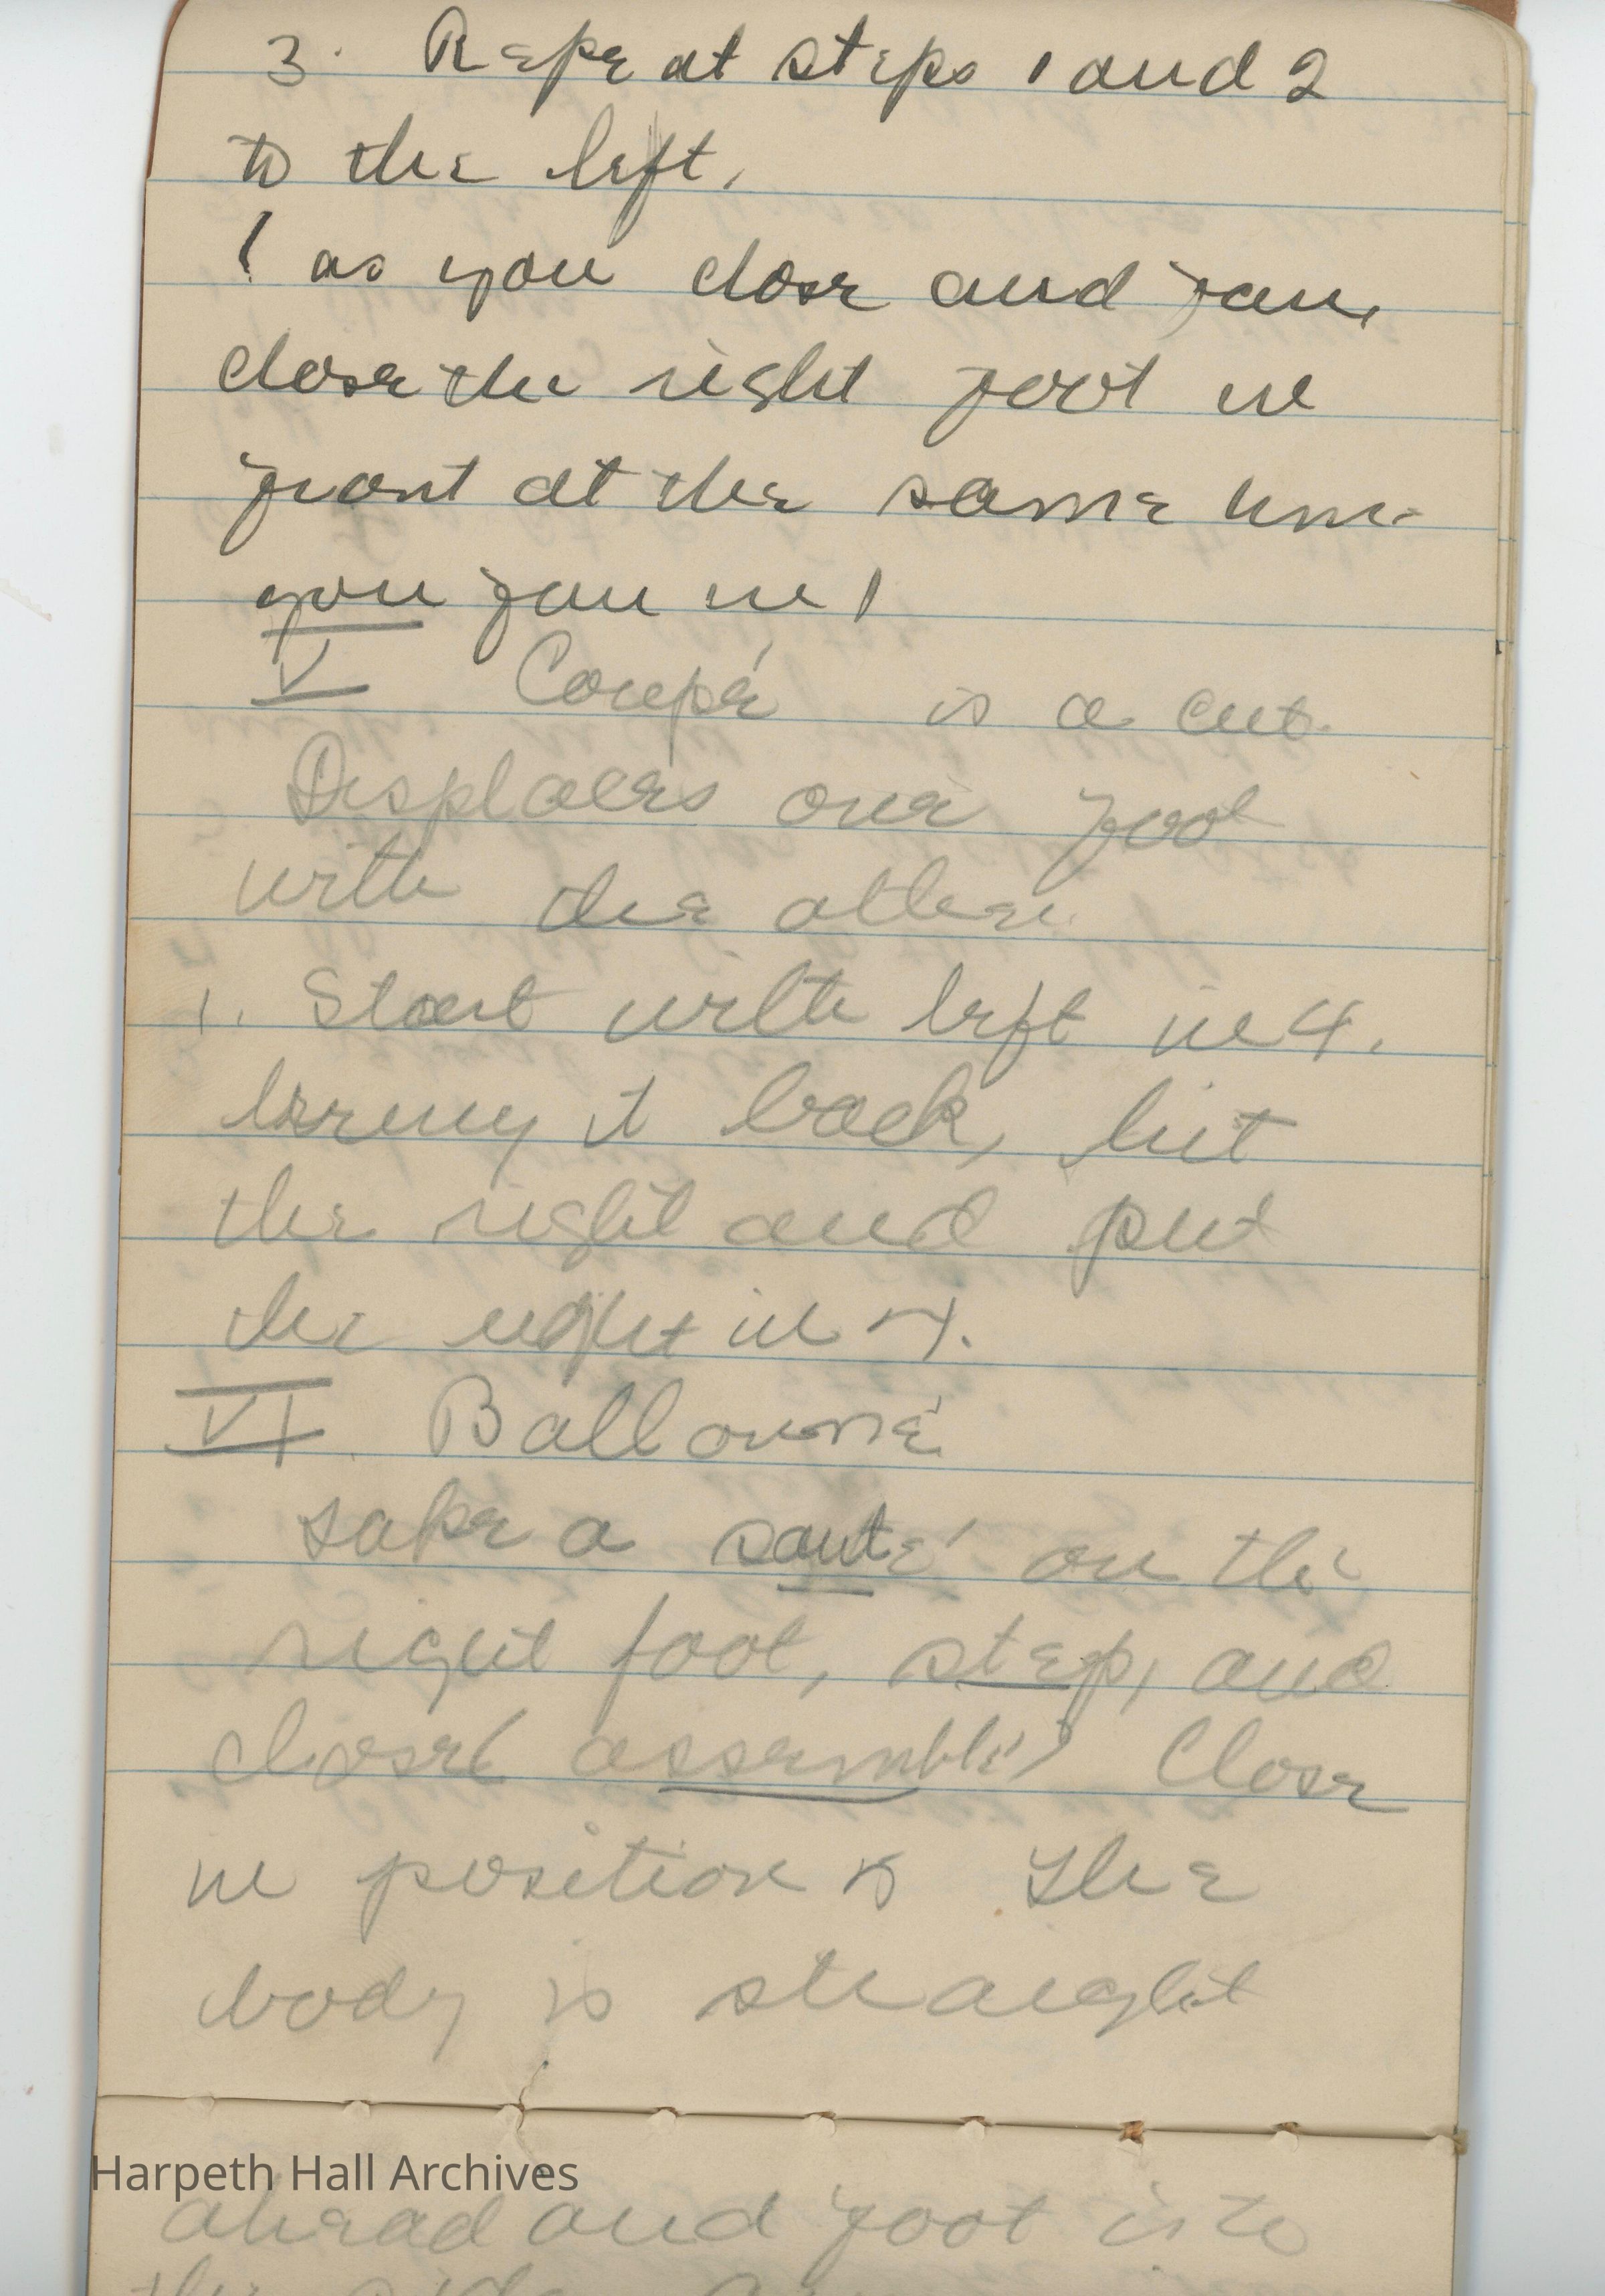 3. Repeat steps 1 and 2
to the left.
( as you close and jau,
close the right foot in
front at the same time
you jau in )
V Coupé is a cut.
Displaces one foot
with the other.
1. Start with left in 4.
bring it back, hit
the right and put
the right in 4.
VI. Ballonné
take a sauté on the
right foot, step, and
close( assemblé) Close
in position 5 The
body is straight
Harpeth Hall Archives
ahead and foot is to
the side